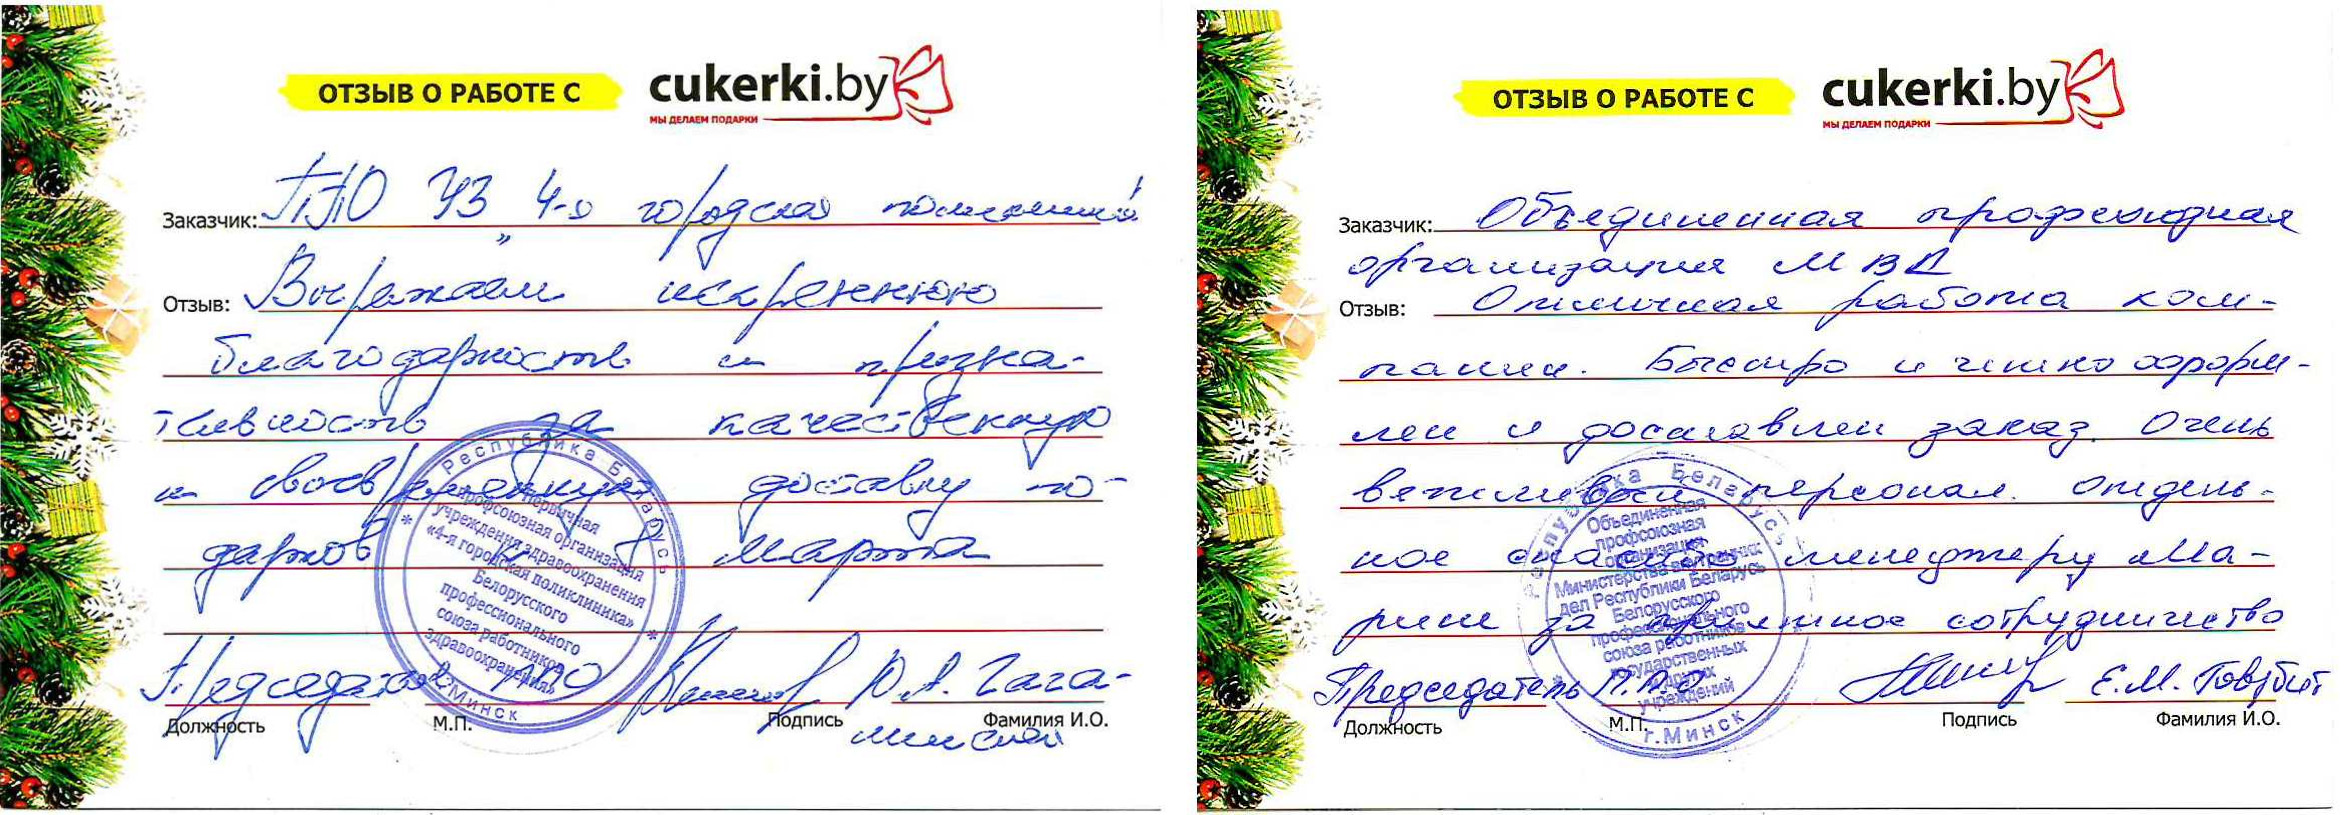 ОТЗЫВ О РАБОТЕ С cukerki.by
МЫ ДЕЛАЕМ ПОДАРКИ
Заказчик: ППО УЗ 4-я городская поликлиника
Отзыв: Выражаем искреннюю
благодарность и призна-
тельность за качественную
и своевременную доставку по-
дарков к 8 марта
Республика Беларусь
Первичная
профсоюзная организация
учреждения здравоохранения
«4-я городская поликлиника»
Белорусского
профессионального
союза работников
здравоохранения»
г.Минск
Председатель ППО Ю.А. Гага-
Должность М.П. Подпись Фамилия И.О.
ОТЗЫВ О РАБОТЕ С cukerki.by
МЫ ДЕЛАЕМ ПОДАРКИ
Заказчик: Объединенная профсоюзная
организация МВД
Отзыв: Отличная работа ком-
пании. Быстро и четко оформ-
лен и доставлен заказ. Очень
вежливый персонал. Отдель-
ное спасибо менеджеру Ма-
рине за приятное сотрудничество
Республика Беларусь
Объединенная
профсоюзная
организация
Министерства внутренних
дел Республики Беларусь
Белорусского
профессионального
союза работников
государственных
и других
учреждений
г.Минск
Председатель П.П.О Е.М. Говзбит
Должность М.П. Подпись Фамилия И.О.